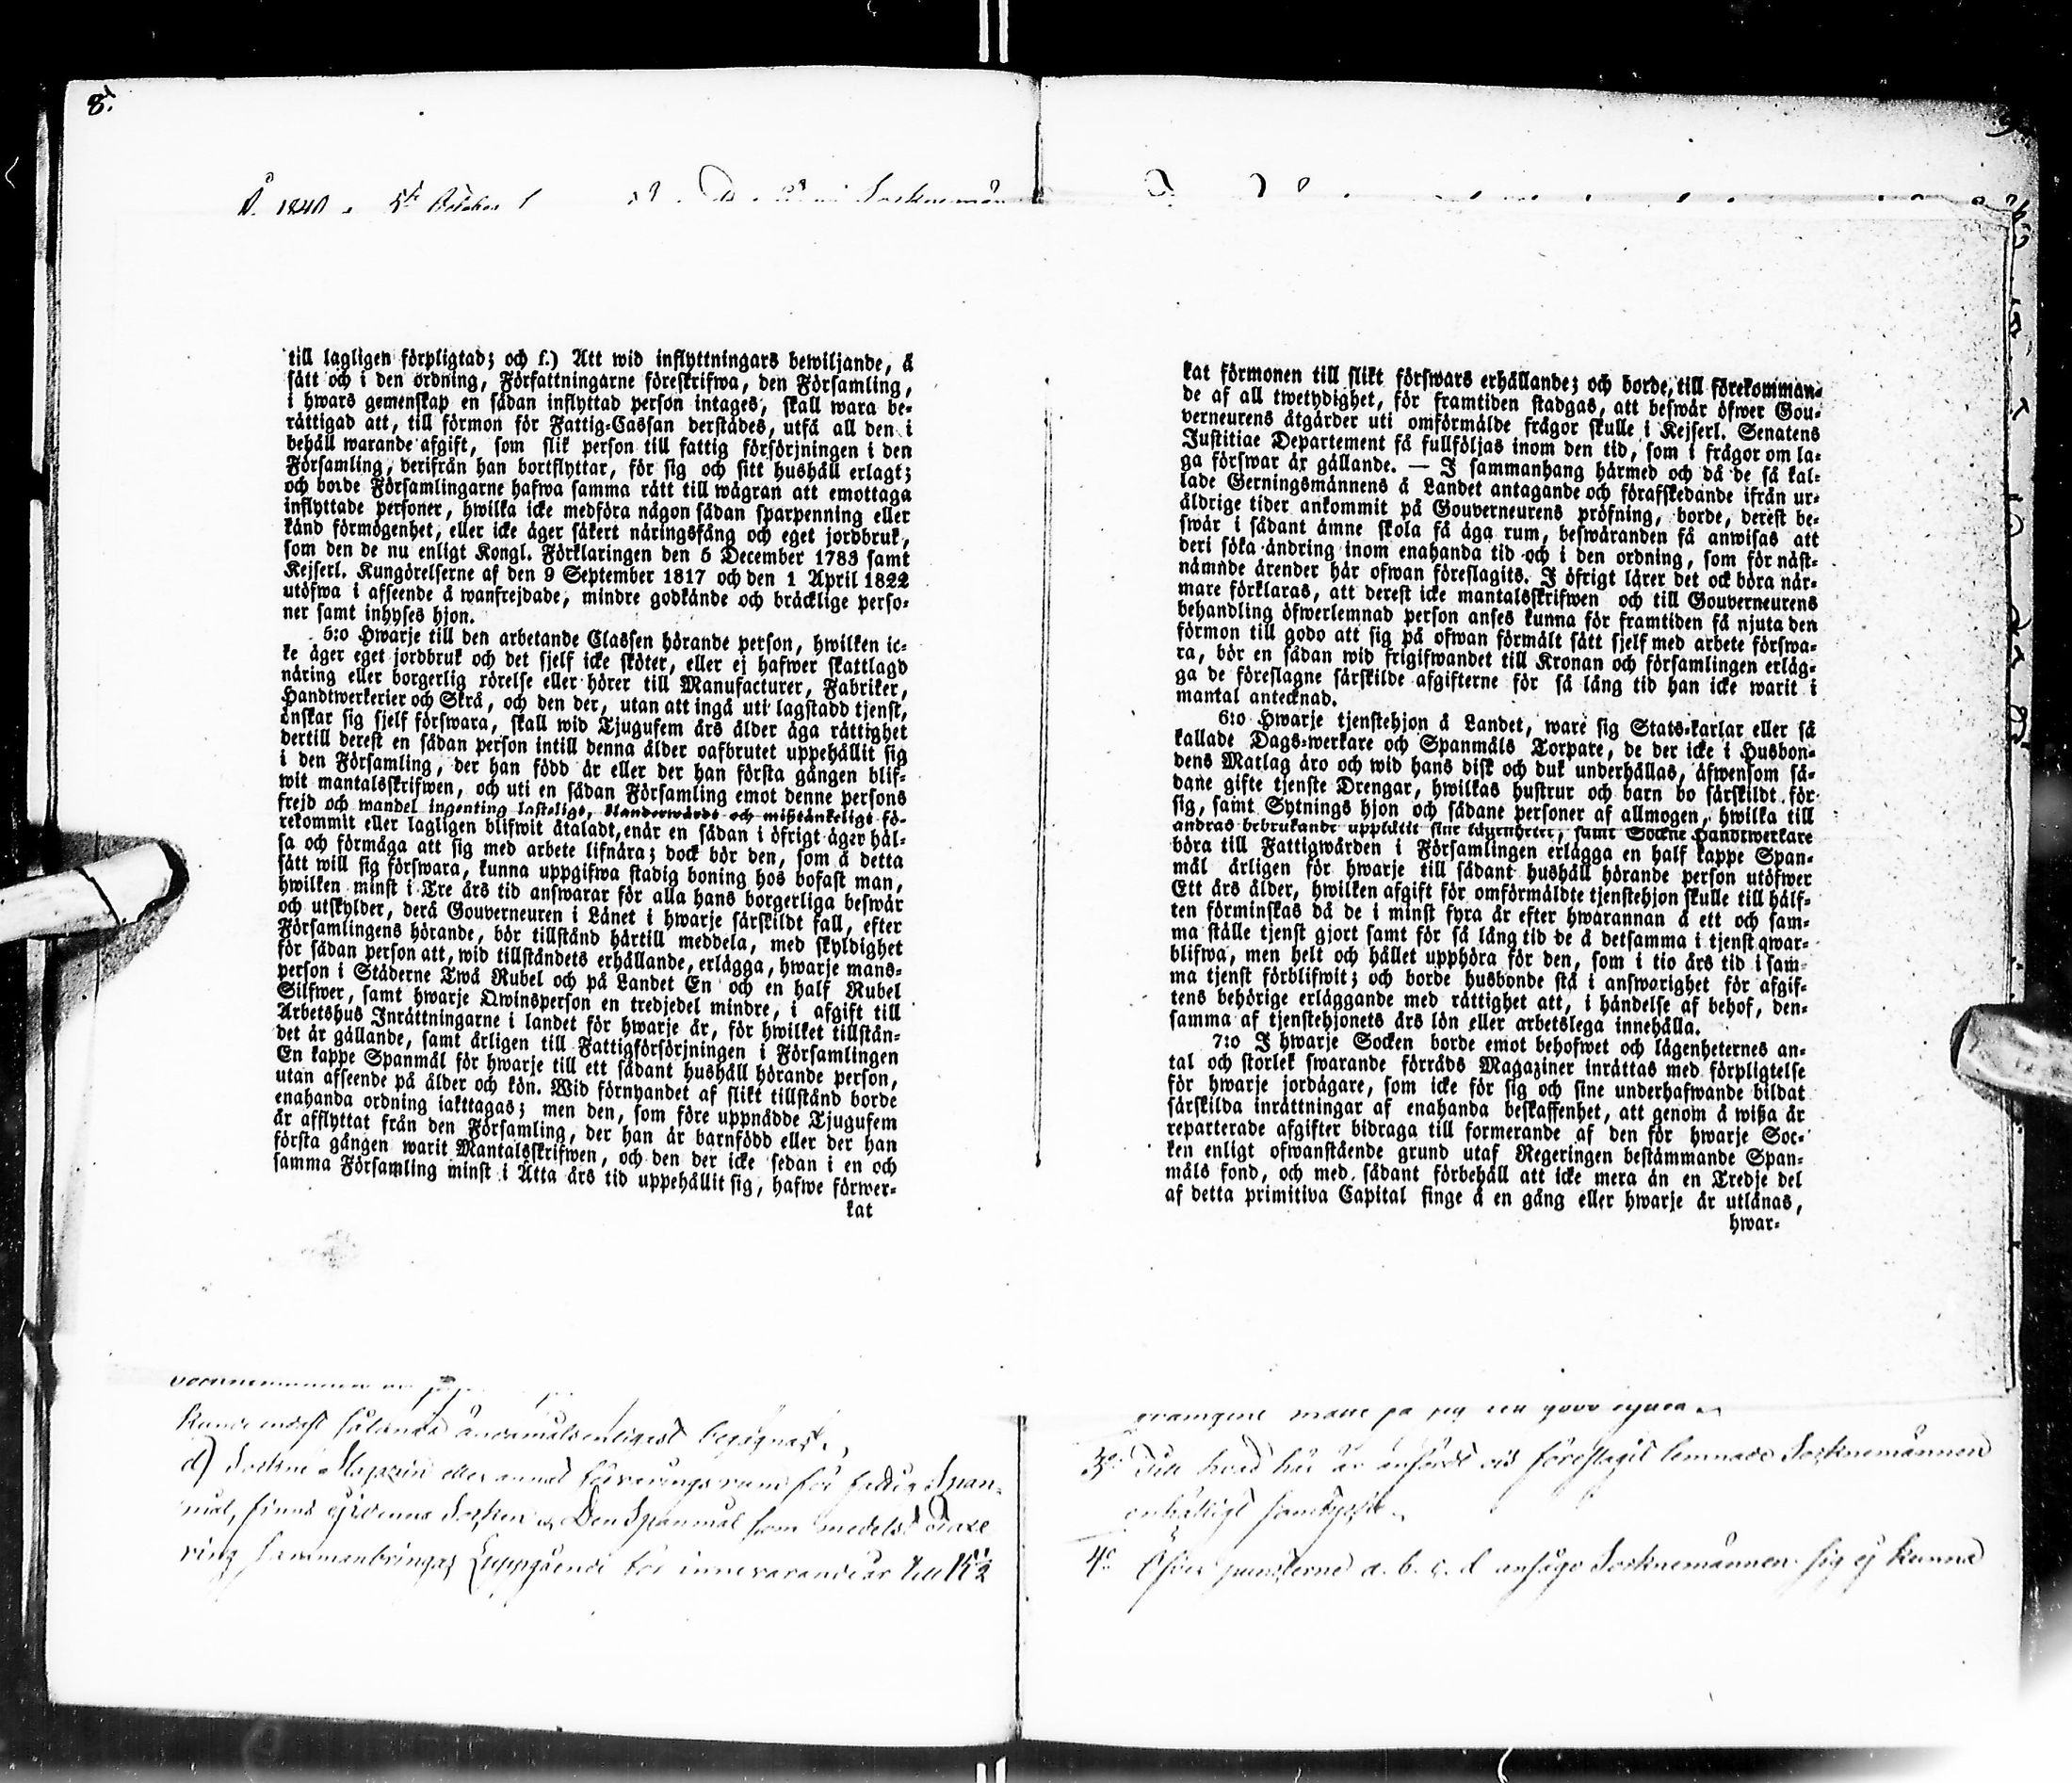 8.
Å 1840 5te October
Socknemän
till lagligen förpligtad; och f.) Att wid inflyttningars bewiljande, å
sätt och i den ordning, Författningarne föreskrifwa, den Församling,
i hwars gemenskap en sådan inflyttad person intages, skall wara be-
rättigad att, till förmon för Fattig-Cassan derstädes, utfå all den i
behåll warande afgift, som slik person till fattig försörjningen i den
Församling, derifrån han bortflyttar, för sig och sitt hushåll erlagt;
och borde Församlingarne hafwa samma rätt till wägran att emottaga
inflyttade personer, hwilka icke medföra någon sådan sparpenning eller
känd förmögenhet, eller icke äger säkert näringsfång och eget jordbruk,
som den de nu enligt Kongl. Förklaringen den 5 December 1783 samt
Kejserl. Kungörelserne af den 9 September 1817 och den 1 April 1822
utöfwa i afseende å wanfrejdade, mindre godkände och bräcklige perso-
ner samt inhyses hjon.
5:o Hwarje till den arbetande Classen hörande person, hwilken ic-
ke äger eget jordbruk och det sjelf icke sköter, eller ej hafwer skattlagd
näring eller borgerlig rörelse eller hörer till Manufacturer, Fabriker,
Handtwerkerier och Skrå, och den der, utan att ingå uti lagstadd tjenst,
önskar sig sjelf förswara, skall wid Tjugufem års ålder äga rättighet
dertill derest en sådan person intill denna ålder oafbrutet uppehållit sig
i den Församling, der han född är eller der han första gången blif-
wit mantalsskrifwen, och uti en sådan Församling emot denne persons
frejd och wandel ingenting lasteligt, klanderwärdt och mißtänkeligt fö-
rekommit eller lagligen blifwit åtaladt, enär en sådan i öfrigt äger häl-
sa och förmåga att sig med arbete lifnära; dock bör den, som å detta
sätt will sig förswara, kunna uppgifwa stadig boning hos bofast man,
hwilken minst i Tre års tid answarar för alla hans borgerliga beswär
och utskylder, derå Gouverneuren i Länet i hwarje särskildt fall, efter
Församlingens hörande, bör tillstånd härtill meddela, med skyldighet
för sådan person att, wid tillståndets erhållande, erlägga, hwarje mans-
person i Städerne Twå Rubel och på Landet En och en half Rubel
Silfwer, samt hwarje Qwinsperson en tredjedel mindre, i afgift till
Arbetshus Inrättningarne i landet för hwarje år, för hwilket tillstån-
det är gällande, samt årligen till Fattigförsörjningen i Församlingen
En kappe Spanmål för hwarje till ett sådant hushåll hörande person,
utan afseende på ålder och kön. Wid förnyandet af slikt tillstånd borde
enahanda ordning iakttagas; men den, som före uppnådde Tjugufem
år afflyttat från den Församling, der han är barnfödd eller der han
första gången warit Mantalsskrifwen, och den der icke sedan i en och
samma Församling minst i Åtta års tid uppehållit sig, hafwe förwer-
kat
kunde anses således ändamålsenligast begagnas.
d) Sockne Magazin eller annat förvaringsrum för fattig Span-
mål, finnes ej i denna Socken. Den Spanmål som medelst Taxe
ring sammanbringas uppgående för innevarande år till 15 1/2
kat förmonen till slikt förswars erhållande; och borde, till förekomman-
de af all twetydighet, för framtiden stadgas, att beswär öfwer Gou-
verneurens åtgärder uti omförmälde frågor skulle i Kejserl. Senatens
Justitiae Departement få fullföljas inom den tid, som i frågor om la-
ga förswar är gällande. — I sammanhang härmed och då de så kal-
lade Gerningsmännens å Landet antagande och förafskedande ifrån ur-
äldrige tider ankommit på Gouverneurens pröfning, borde, derest be-
swär i sådant ämne skola få äga rum, beswäranden få anwisas att
deri söka ändring inom enahanda tid och i den ordning, som för näst-
nämnde ärender här ofwan föreslagits. I öfrigt lärer det ock böra när-
mare förklaras, att derest icke mantalsskrifwen och till Gouverneurens
behandling öfwerlemnad person anses kunna för framtiden få njuta den
förmon till godo att sig på ofwan förmält sätt sjelf med arbete förswa-
ra, bör en sådan wid frigifwandet till Kronan och församlingen erläg-
ga de föreslagne särskilde afgifterne för så lång tid han icke warit i
mantal antecknad.
6:o Hwarje tjenstehjon å Landet, ware sig Stats-karlar eller så
kallade Dags-werkare och Spanmåls Torpare, de der icke i Husbon-
dens Matlag äro och wid hans disk och duk underhållas, äfwensom så-
dane gifte tjenste Drengar, hwilkas hustrur och barn bo särskildt för
sig, samt Sytnings hjon och sådane personer af allmogen, hwilka till
andras bebrukande upplåtit sine lägenheter, samt Sockne Handtwerkare
böra till Fattigwården i Församlingen erlägga en half kappe Span-
mål årligen för hwarje till sådant hushåll hörande person utöfwer
Ett års ålder, hwilken afgift för omförmäldte tjenstehjon skulle till hälf-
ten förminskas då de i minst fyra år efter hwarannan å ett och sam-
ma ställe tjenst gjort samt för så lång tid de å detsamma i tjenst qwar-
blifwa, men helt och hållet upphöra för den, som i tio års tid i sam-
ma tjenst förblifwit; och borde husbonde stå i answarighet för afgif-
tens behörige erläggande med rättighet att, i händelse af behof, den-
samma af tjenstehjonets års lön eller arbetslega innehålla.
7:o I hwarje Socken borde emot behofwet och lägenheternes an-
tal och storlek swarande förråds Magaziner inrättas med förpligtelse
för hwarje jordägare, som icke för sig och sine underhafwande bildat
särskilda inrättningar af enahanda beskaffenhet, att genom å wißa år
reparterade afgifter bidraga till formerande af den för hwarje Soc-
ken enligt ofwanstående grund utaf Regeringen bestämmande Span-
måls fond, och med sådant förbehåll att icke mera än en Tredje del
af detta primitiva Capital finge å en gång eller hwarje år utlånas,
hwar-
3o Till hvad här är anfördt och föreslagit lemnade Socknemännen
enhälligt samtycke.
4o Öfver puncterne a. b. c. d ansågo Socknemännen sig ej kunna